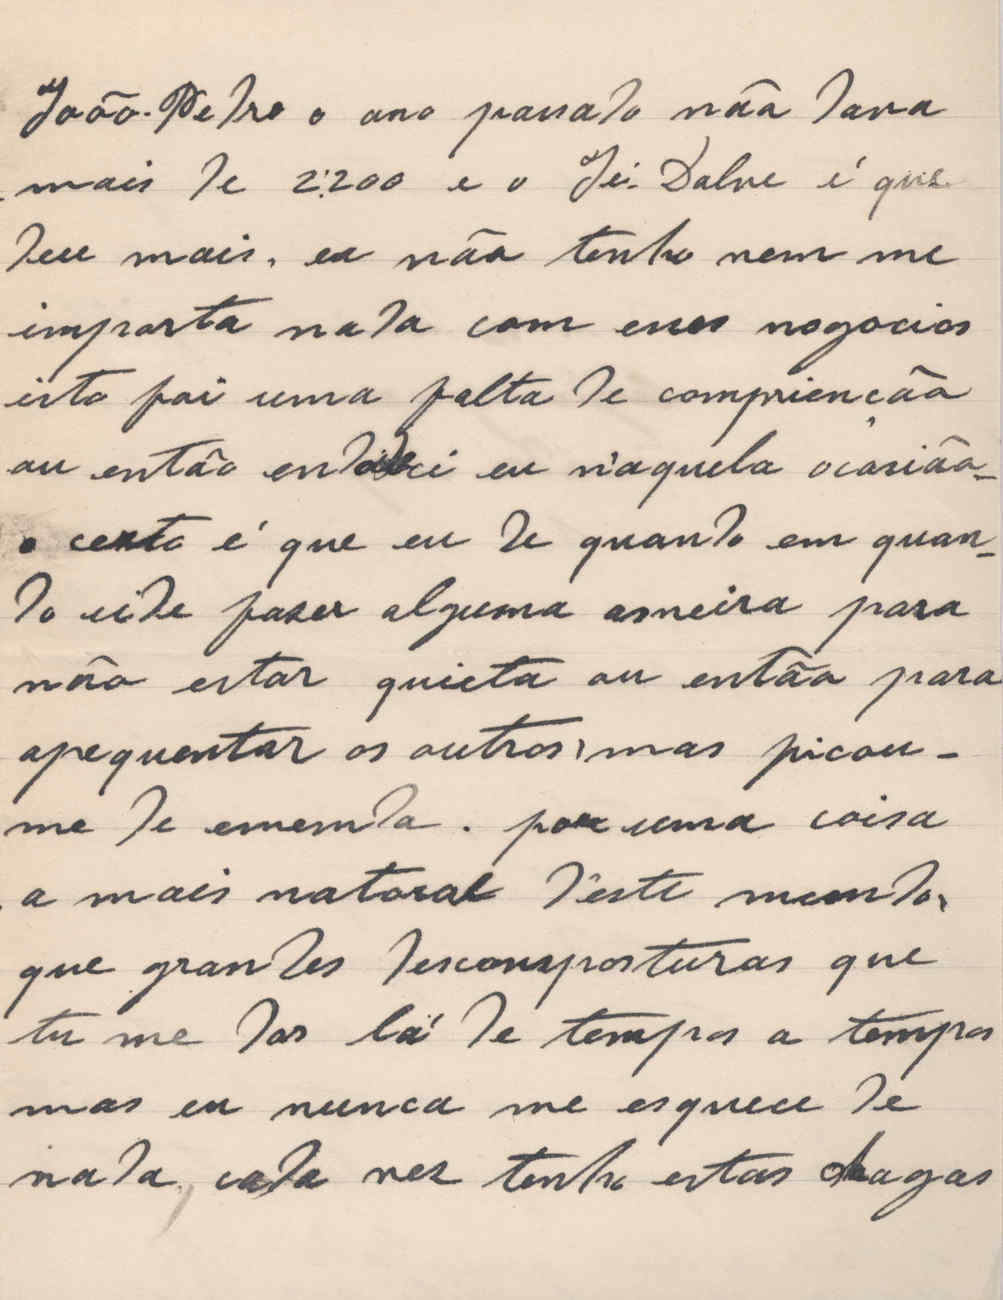 João. Pedro o ano passado não dava
mais de 2:200 e o Dalve é que
deu mais, eu não tenho nem me
importa nada com eses nogocios
isto foi uma falta de comprienção
ou então eu n'aquela ocasião
o certo é que eu de quando em quan-
do fazer alguma asneira para
não estar quieta ou então para
apequentar os outros, mas picou-
me de ememda. por uma coisa
a mais natoral d'este mundo,
que grandes descomposturas que
tu me das lá de tempos a tempos
mas eu nunca me esquece de
nada, cada vez tenho estas chagas